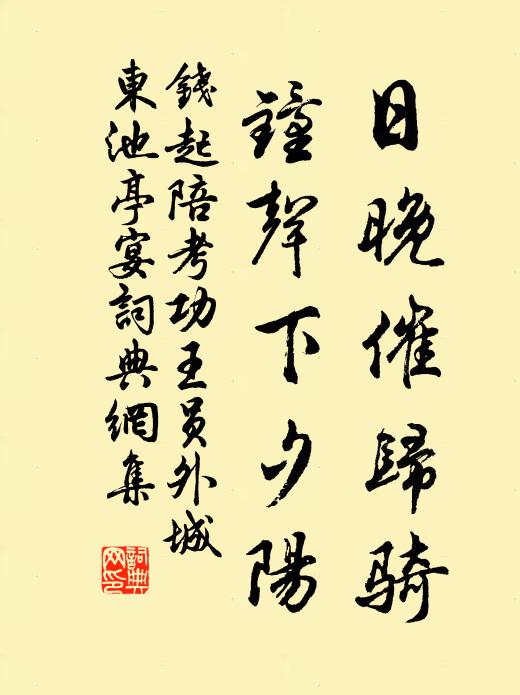 日晚催歸骑
鐘聲下夕陽
錢起陪考功王员外城
東池亭宴詞典網集
詞典网印